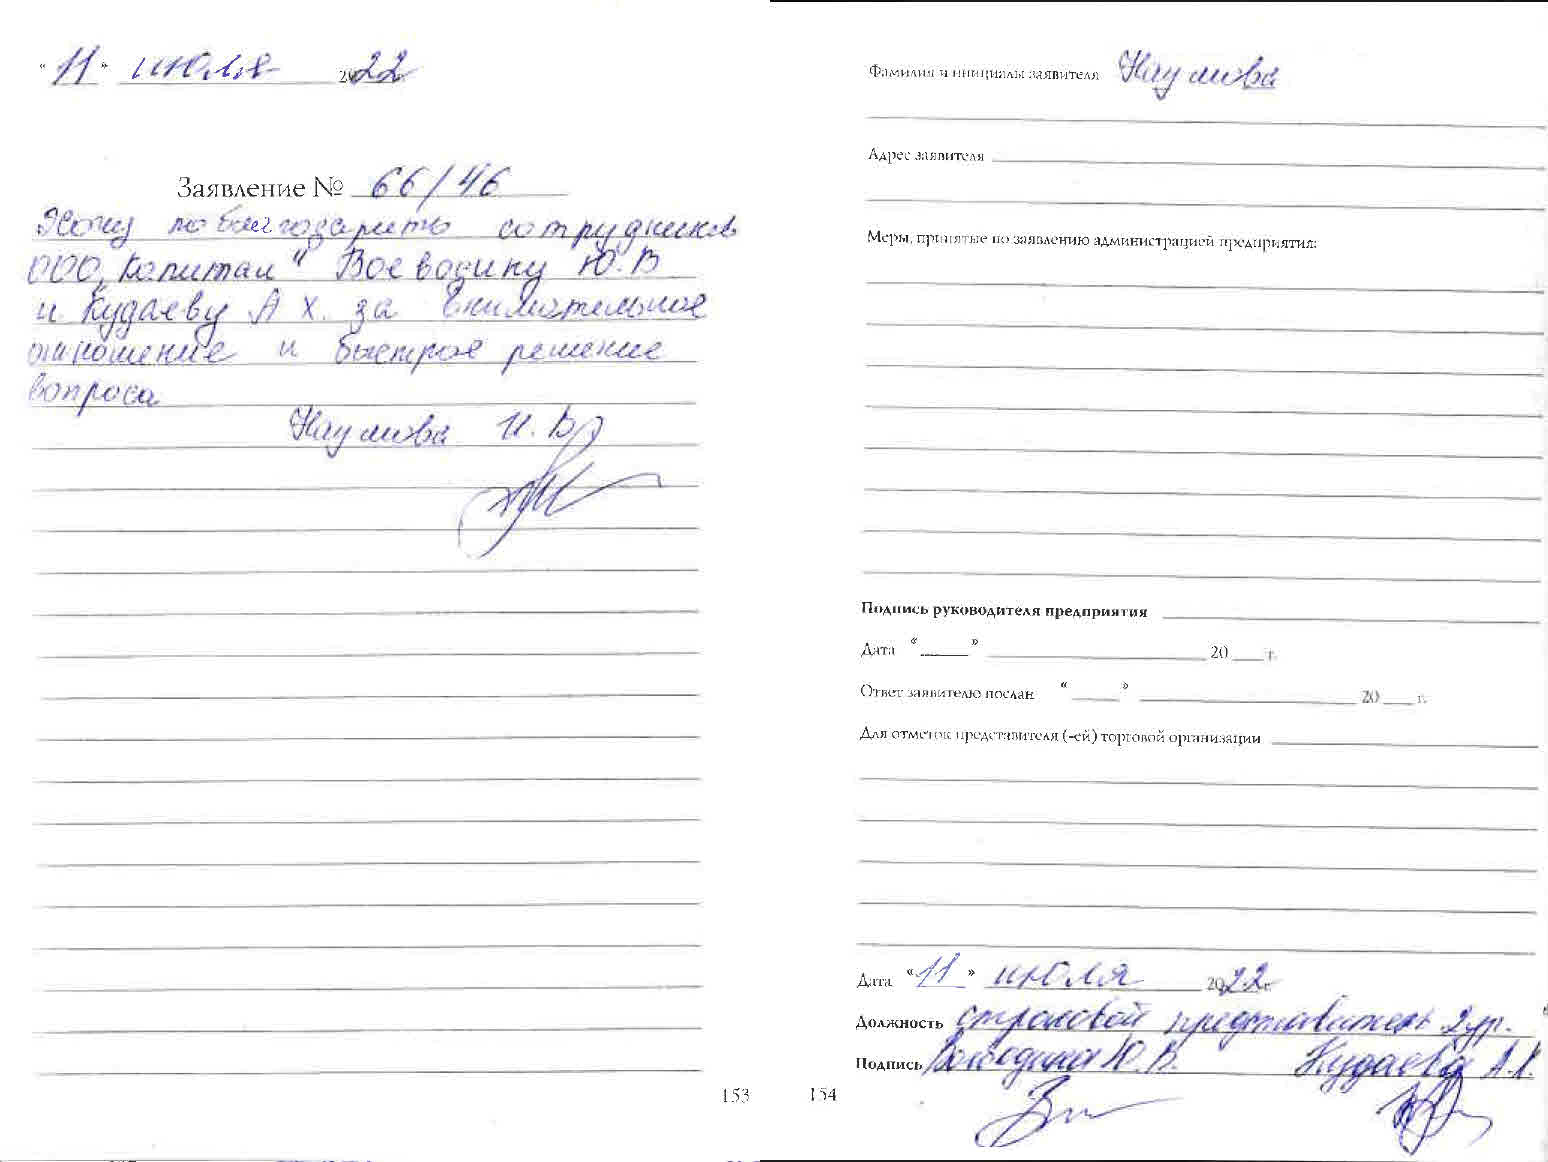 "11" июля 2022
Заявление № 66/46
Хочу поблагодарить сотрудников
ООО „Капитал" Воеводину Ю.В
и Кудаеву А Х. за внимательное
отношение и быстрое решение
вопроса
Наумова И. В
153
Фамилия и инициалы заявителя Наумова
Адрес заявителя
Меры, принятые по заявлению администрацией предприятия:
Подпись руководителя предприятия
Дата "____" ____ 20 ___ г.
Ответ заявителю послан "____" ____ 20 ___ г.
Для отметок представителя (-ей) торговой организации
Дата "11" июля 2022 г.
Должность страховой представитель 2 ур.
Подпись Воеводина Ю.В. Кудаева А.Х.
154